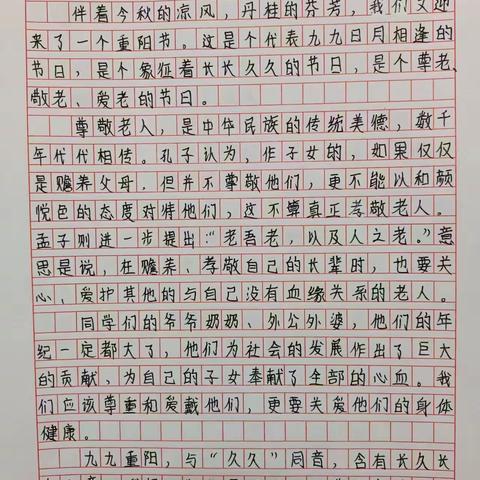 伴着今秋的凉风，丹桂的芬芳，我们又迎
来了一个重阳节。这是个代表九九日月相逢的
节日，是个象征着长长久久的节日，是个尊老、
敬老、爱老的节日。
尊敬老人，是中华民族的传统美德，数千
年代代相传。孔子认为，作子女的，如果仅仅
是赡养父母，但并不尊敬他们，更不能以和颜
悦色的态度对待他们，这不算真正孝敬老人。
孟子则进一步提出：“老吾老，以及人之老。”意
思是说，在赡养、孝敬自己的长辈时，也要关
心、爱护其他的与自己没有血缘关系的老人。
同学们的爷爷奶奶、外公外婆，他们的年
纪一定都大了，他们为社会的发展作出了巨大
的贡献、为自己的子女奉献了全部的心血。我
们应该尊重和爱戴他们，更要关爱他们的身体
健康。
九九重阳，与“久久”同音，含有长久长